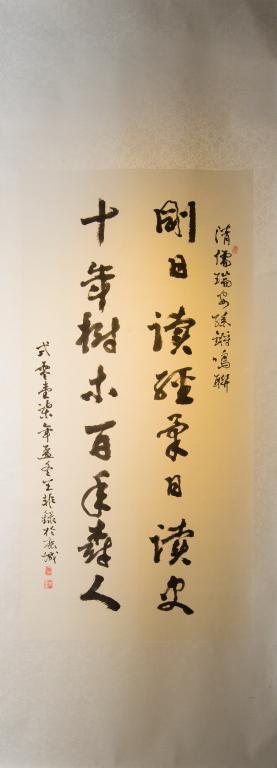 清儒瑞安孫鏘鳴聯
剛日讀經柔日讀史
十年樹木百年樹人
弍零壹柒年孟冬王非錄於